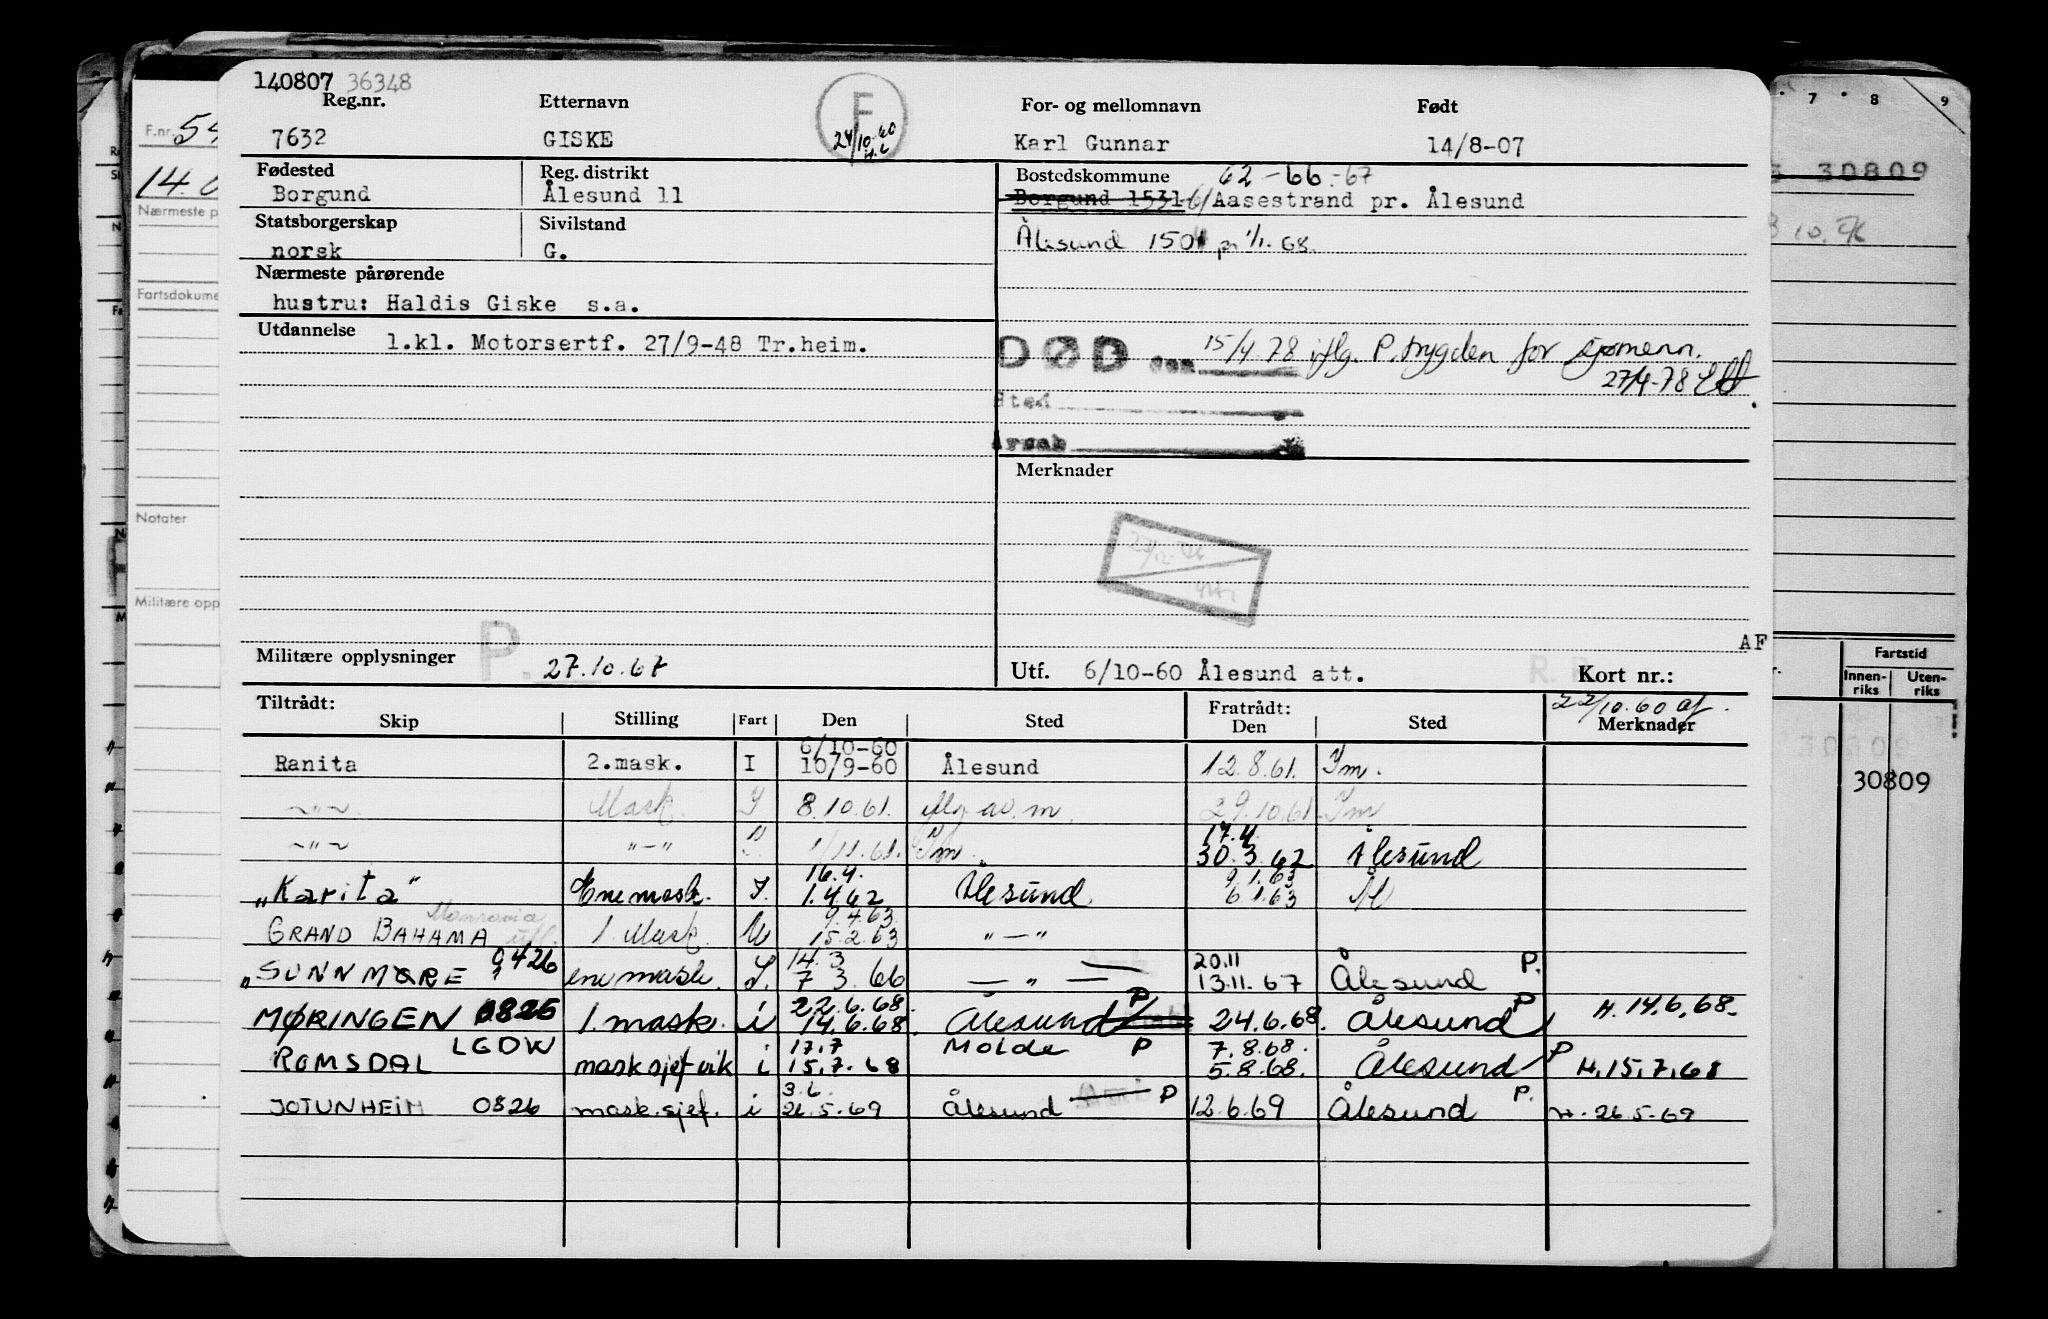 140807 36348
Reg.nr. Etternavn For- og mellomnavn Født
7632 GISKE F 24/10.60 Karl Gunnar 14/8-07
Fødested Reg. distrikt Bostedskommune 62-66-67
Borgund Ålesund 11 Borgund 1531 Aasestrand pr. Ålesund
Statsborgerskap Sivilstand
norsk G. Ålesund 1501 pr 1/1.68.
Nærmeste pårørende
hustru: Haldis Giske s.a.
Utdannelse
1.kl. Motorsertf. 27/9-48 Tr.heim.
DØD den 15/4.78 iflg. P.trygden for sjømenn.
27/4-78
Sted
Årsak
Merknader
AF
Militære opplysninger P. 27.10.67 Utf. 6/10-60 Ålesund att. Kort nr.:
22/10.60 af.
Tiltrådt: Fratrådt:
Skip Stilling Fart Den Sted Den Sted Merknader
6/10-60
Ranita 2.mask. I 10/9-60 Ålesund 12.8.61. Im.
~"~ Mask. I 8.10.61. iflg av.m. 29.10.61. Im
17.4.
~"~ "-" " 1/11.61. Im 30.3.62 Ålesund
16.4. 9.1.63
"Karita" Ene mask. I. 1.4.62 Ålesund 6.1.63 Ål
Monrovia 9.4.63
GRAND BAHAMA utl. 1. Mask. U 15.2.63 "—"
14.3 20.11
"SUNNMØRE 0426 ene mask. I. 7 3. 66 — " — 13.11.67 Ålesund P.
22.6.68.
MØRINGEN 0826 1. mask. i 14.6.68. Ålesund P 24.6.68. Ålesund P H. 14.6.68.
17.7 7.8.68.
ROMSDAL LGDW mask sjef vik i 15.7.68 Molde P 5.8.68. Ålesund P H. 15.7.68
3.6.
JOTUNHEIM 0826 mask.sjef. i 26.5.69 Ålesund P 12.6.69 Ålesund P. H. 26.5.69
F.nr.
Nærmeste p
Fartsdokume
Notater
Militære opp
7 8 9
30809
Fartstid
Innen-riks Uten-riks
30809
30809